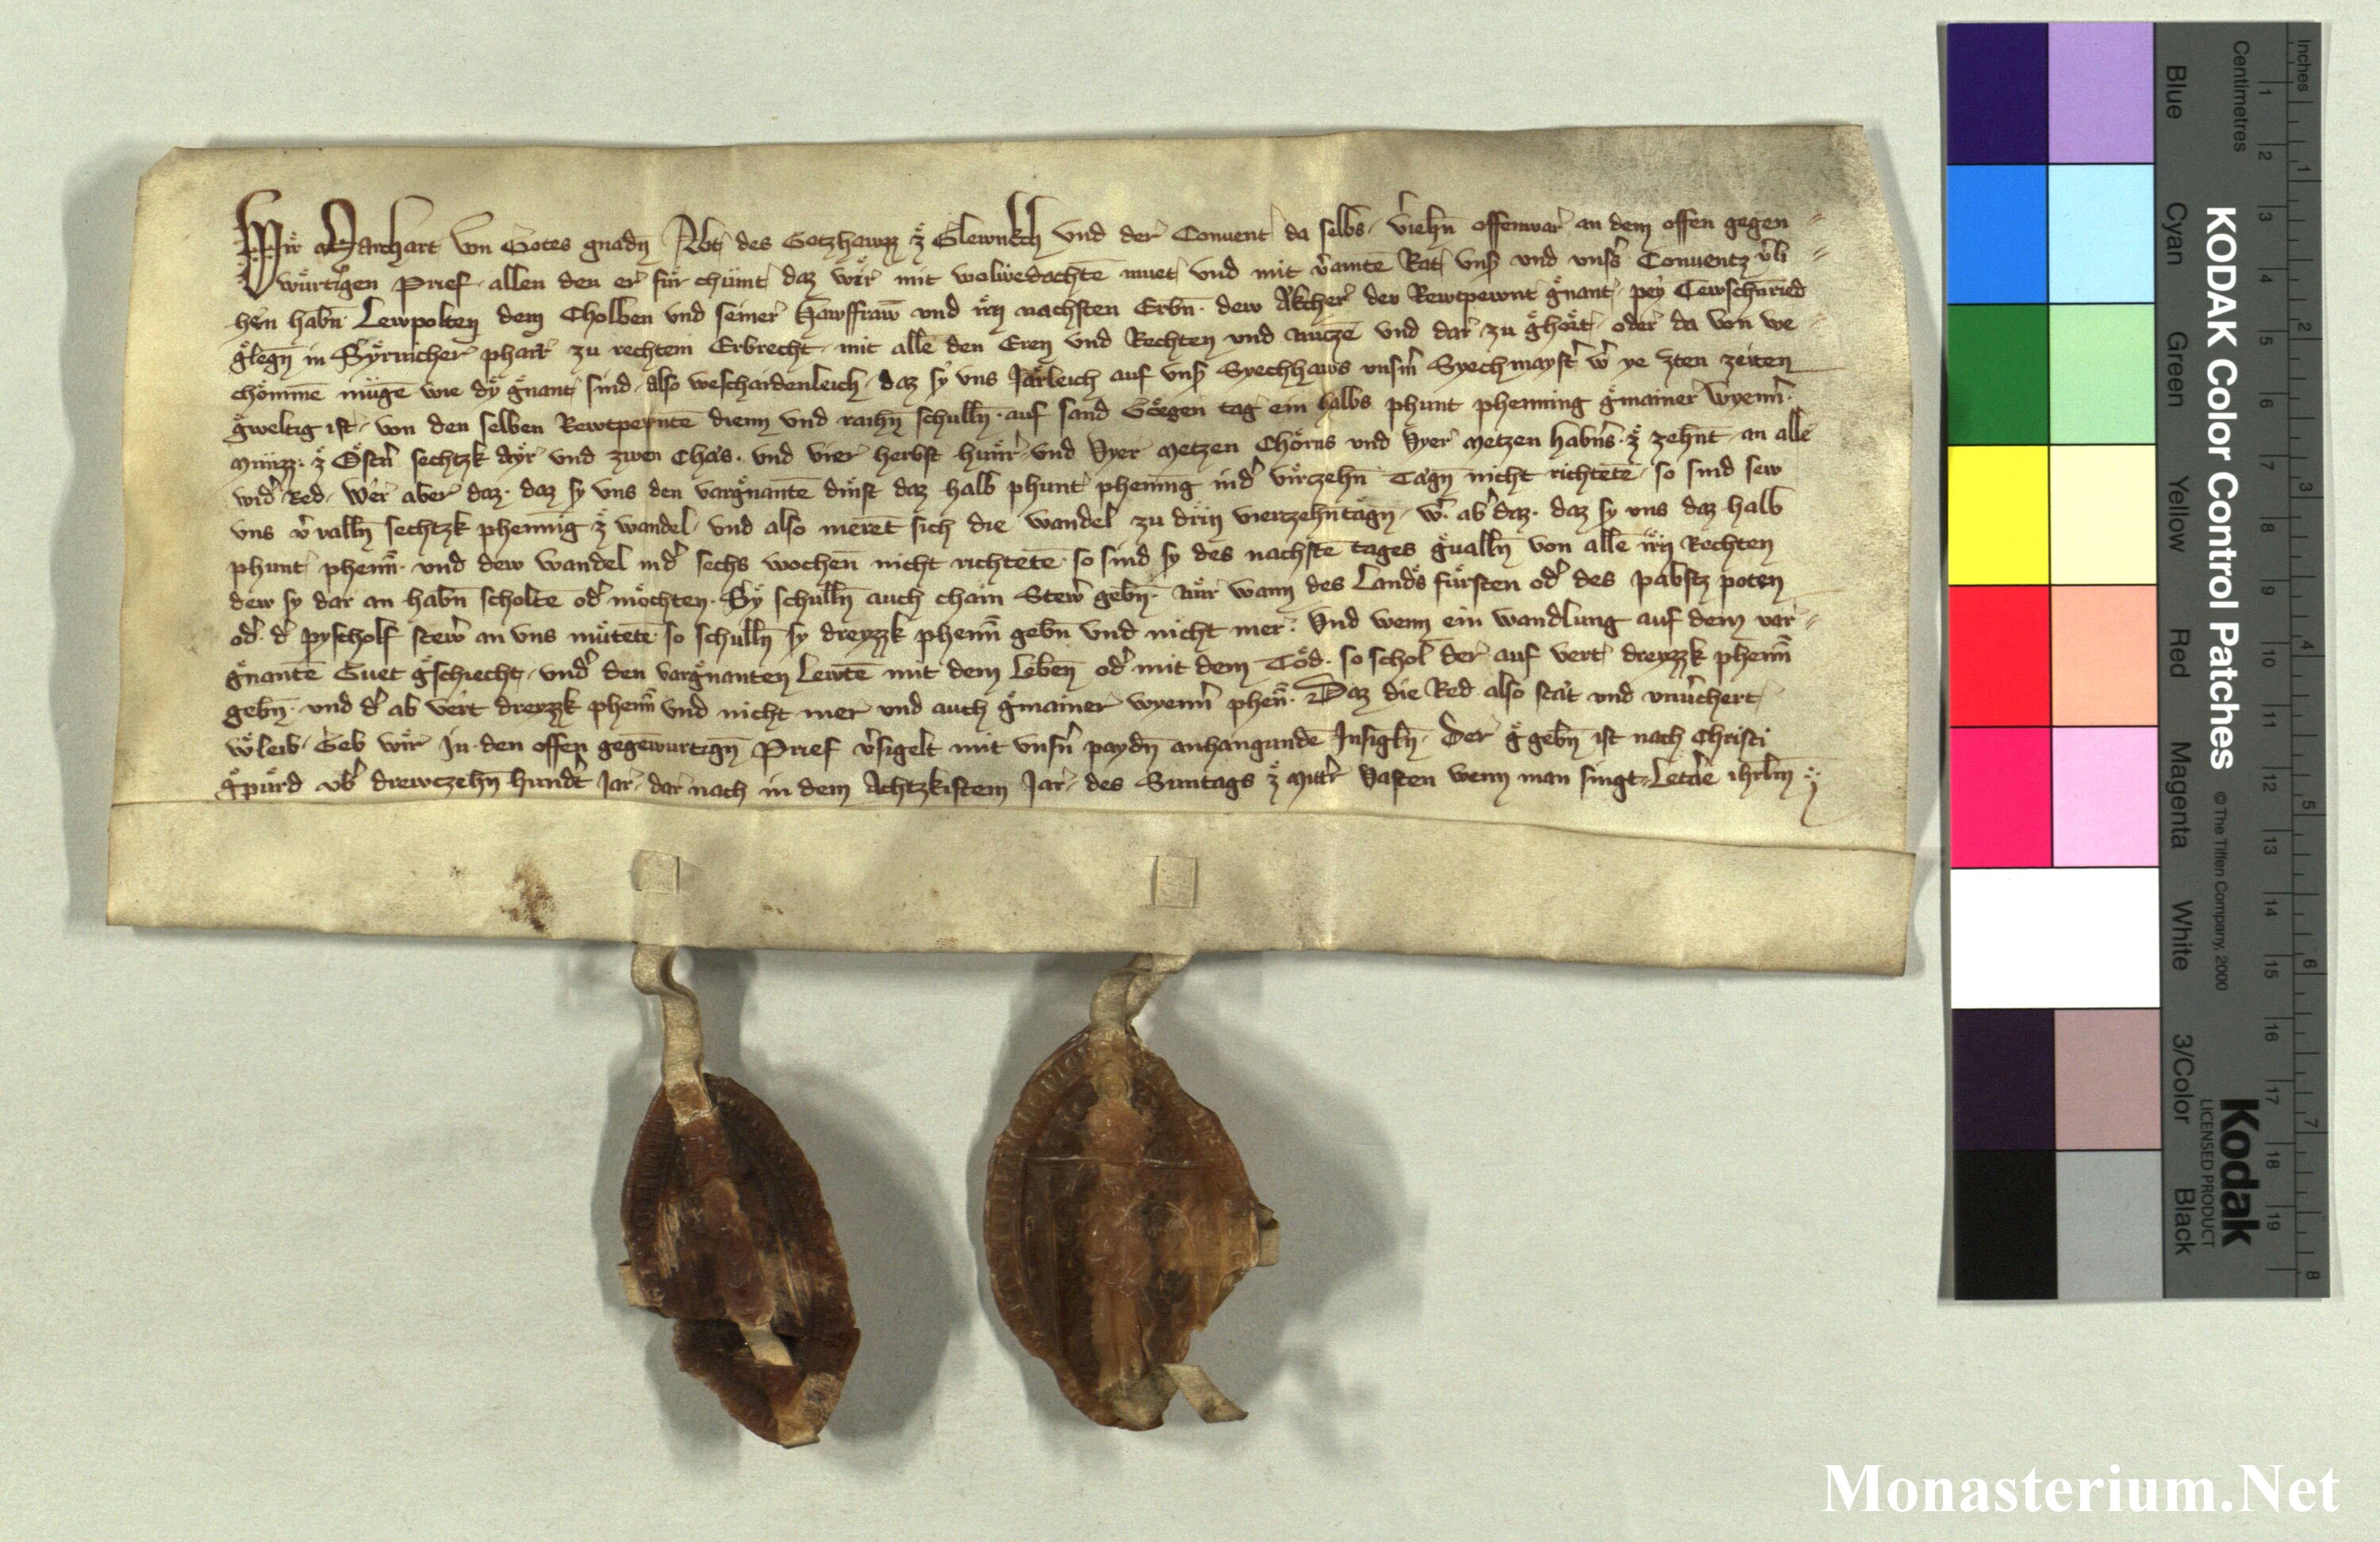 Wir Marchart von Gotes gnadn̄ Abt des Gotzhawsz zͤ Glewnikch und der Conuent da selbs, v̓iehn̄ offenwar an dem offen gegen =
würtigen Prief, allen den er für chümt, daz wir mit wolbedachtē muet, und mit v̓aintē Rat, vns̓ und vnss̓ Conuentz v̓li =
hen habn̄ Lewpolten dem Cholben und seiner Hawsfraw̄ und irn nachsten Erbn̄. dew Äkcher der Rewtpewnt gͤnant, pey Tewschnried
gͤlegn̄ in Syrnicher pharr zu rechtem Erbrecht, mit allē den Eren und Rechten und nutzē und dar zu gͤhört, oder da von we =
chömmē mügē wie dy gͤnant sind, also weschaidenleich, daz sy vns Järleich auf vns̓ Syechhaws unsm̓ Syechmayst̓ w̓ ye zten zeiten
gͤweltig ist, von den selben Rewtpewntē dienn und raihn̄ schulln̄. auf sand Görgen tag ein halbs phunt phenning gͤmainer Wyenn̓.
Münzz. zͤ Östn̓ sechtzk Ayr und zwen Chäs. und vier herbst hünr, und Vyer Metzen Chörns und Vyer Metzen habn̓s. zͤ zehnt, an allē
wid̓ Red, Wer aber daz. daz sy vns den vargͤnantē dinst daz halb phunt phening ind̓ virczehn̄ Tägn̄ nicht richtetē, so sind sew
vns v̓ualln̄ sechtzk phennīg zͤ wandel, und also meret sich die wandel zu drin vierzehn̄tägn̄, w̓ ab̓ daz. daz sy vns daz halb
phunt phenn̄. und dew wandel ind̓ sechs wochen̄ nicht richtetē, so sind sy des nachstē tages gͤualln̄ von allē irn Rechten
dew sy dar an habn̄ scholtē od̓ möchten. Sy schulln̄ auch chain Stew̓ gebn̄. nür wann des Lands fürsten od̓ des pabstz poten
od̓. d̓ pyscholf stew̓ an vns mütetē, so schulln̄ sy dreyzzk phenn̄ gebn̄ und nicht mer. Und wenn ein wandlung auf dem var =
gͤnantē Guet gͤschiecht, und̓ den vargͤnanten Lewtē mit dem Leben̄ od̓ mit dem Töd. so schol der auf vert dreyzzk phenn̄
gebn̄. und d̓ ab vert dreyzzk phenn̄ und nicht mer und auch gͤmainer wyenn̓ phen̄. Daz die Red also stät und vnu̓chert
w̓leib, Geb wir in den offen gegēwurtign̄ Prief v̓sigelt mit vnsn̓ paydn̄ anhangundē Insigln̄. Der gͤgebn̄ ist nach Christi
gͤpürd vb̓ drewczehn̄ hund̓t Jar, dar nach in dem Achtzkistem Jar, des Suntags zͤ Mitt̓ Vasten wenn man singt, Letāe ihrl̄m
Inches
Centimetres
1 2 3 4 5 6 7 8 9 10 11 12 13 14 15 16 17 18 19
1 2 3 4 5 6 7 8
KODAK Color Control Patches
© The Tiffen Company, 2000
Kodak
LICENSED PRODUCT
Blue Cyan Green Yellow Red Magenta White 3/Color Black
Monasterium.Net